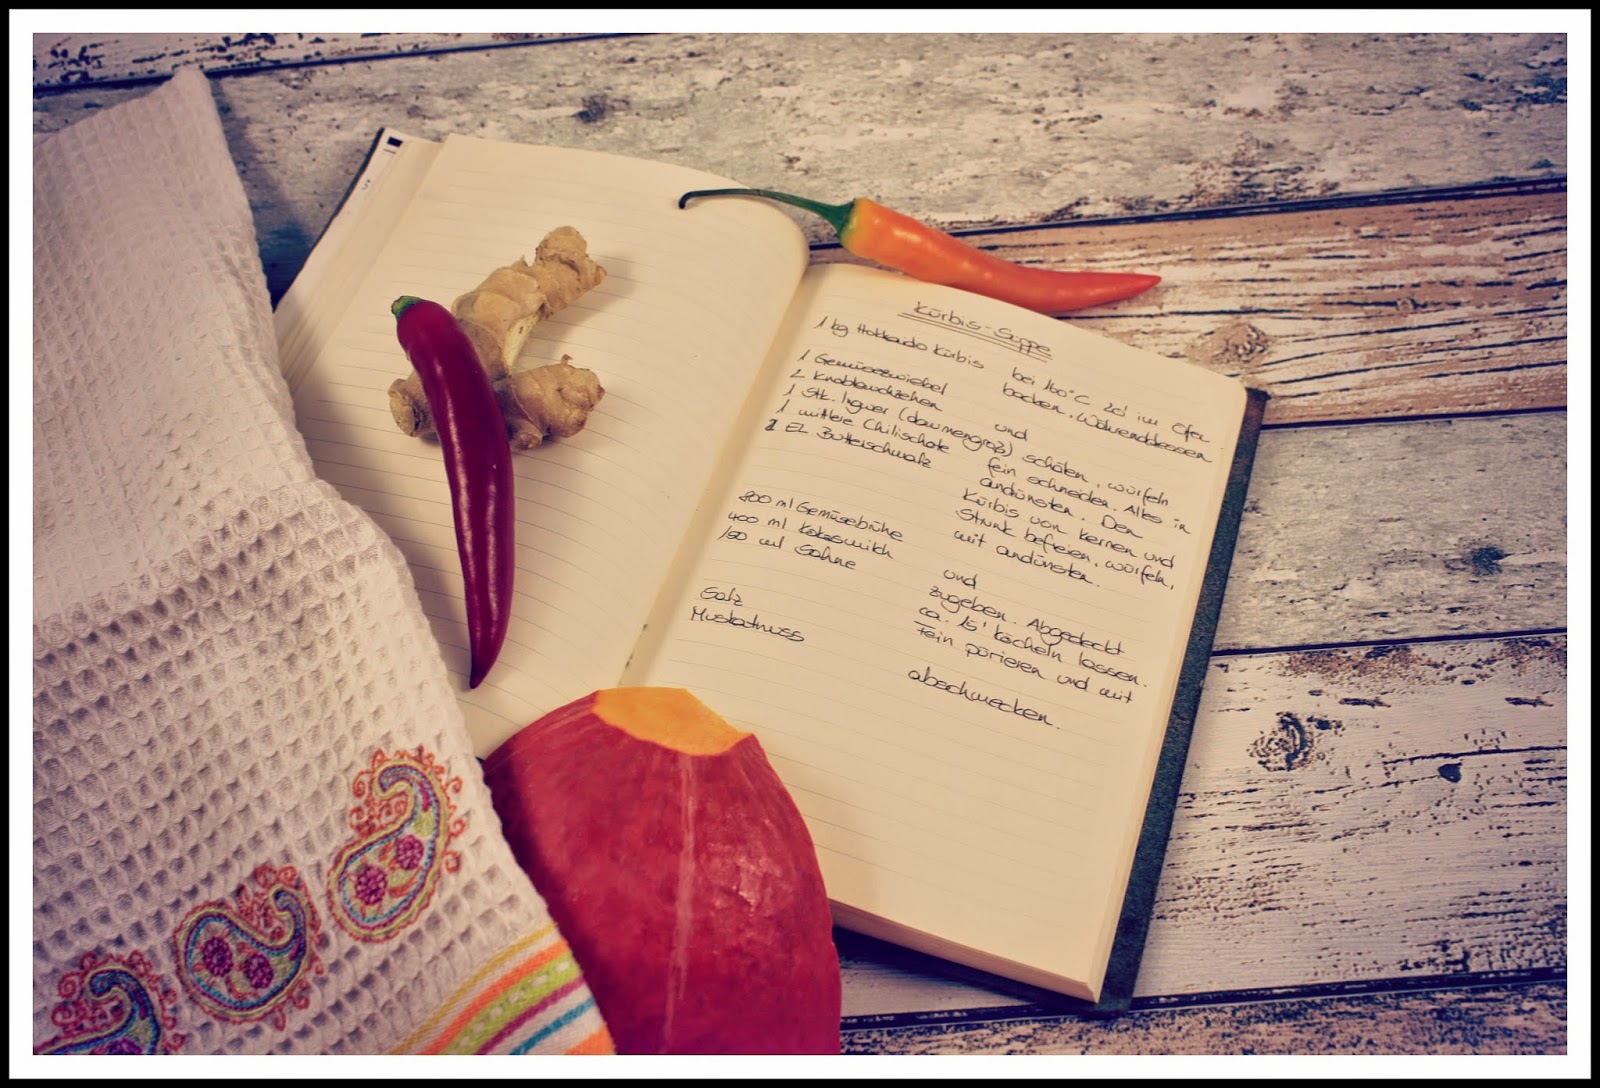 Kürbis-Suppe
1 kg Hokkaido Kürbis bei 160°C 20' im Ofen
1 Gemüsezwiebel backen. Währenddessen
2 Knoblauchzehen und
1 Stk. Ingwer (daumengroß) schälen, würfeln
1 mittlere Chilischote fein schneiden. Alles in
EL Butterschmalz andünsten. Den
Kürbis von Kernen und
Strunk befreien, würfeln,
mit andünsten.
800 ml Gemüsebrühe
400 ml Kokosmilch und
150 ml Sahne zugeben. Abgedeckt
ca. 15' köcheln lassen.
Salz Fein pürieren und mit
Muskatnuss abschmecken.